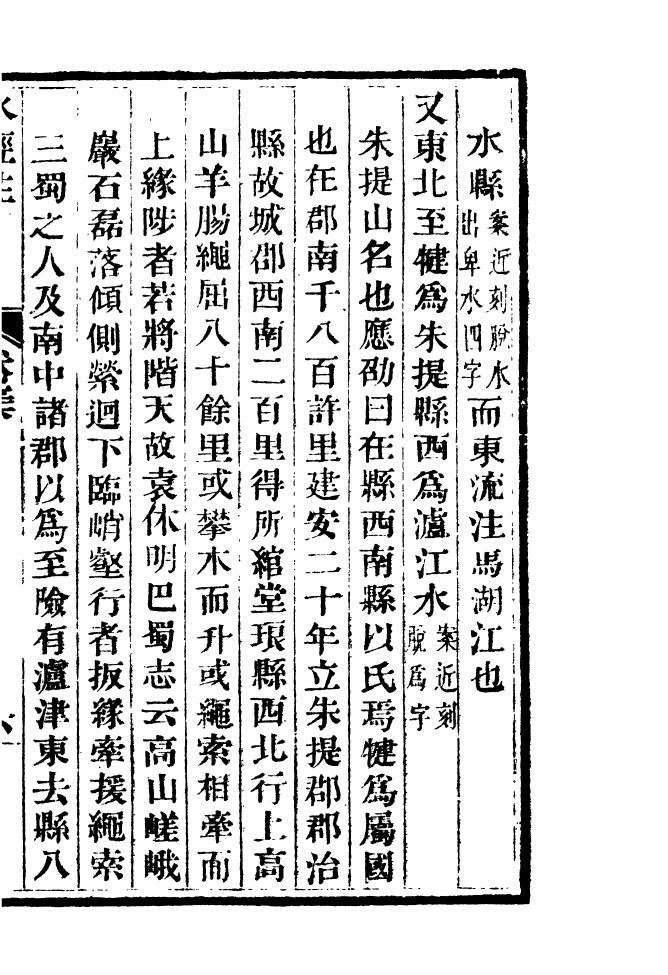 水縣案近刻脫水出卑水四字而東流注馬湖江也
又東北至犍爲朱提縣西爲瀘江水案近刻脫爲字
朱提山名也應劭曰在縣西南縣以氏焉犍爲屬國
也在郡南千八百許里建安二十年立朱提郡郡治
縣故城郡西南二百里得所綰堂琅縣西北行上高
山羊腸繩屈八十餘里或攀木而升或繩索相牽而
上緣陟者若將階天故袁休明巴蜀志云高山嵯峨
巖石磊落傾側縈迴下臨峭壑行者扳緣牽援繩索
三蜀之人及南中諸郡以爲至險有瀘津東去縣八
水經注